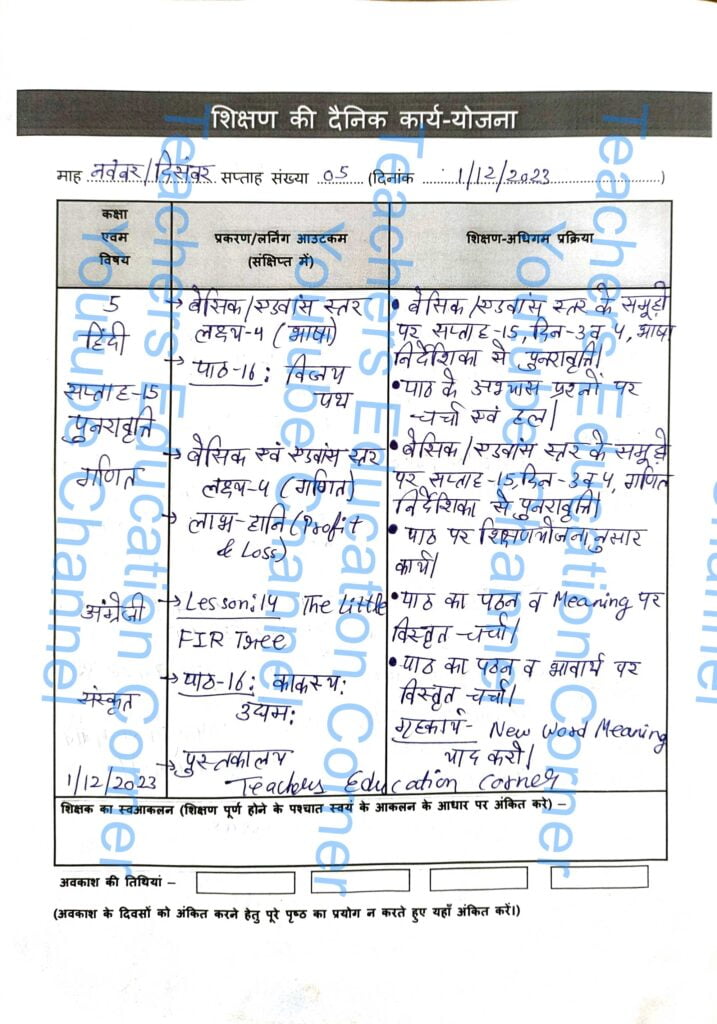 शिक्षण की दैनिक कार्य-योजना
माह नवंबर/दिसंबर सप्ताह संख्या 05 (दिनांक 1/12/2023)
कक्षा
एवम
विषय
प्रकरण/लर्निंग आउटकम
(संक्षिप्त में)
शिक्षण-अधिगम प्रक्रिया
5
हिंदी
सप्ताह-15
पुनरावृत्ति
→ बेसिक/एडवांस स्तर
लक्ष्य-4 (भाषा)
→ पाठ-16: विजय
पथ
• बेसिक/एडवांस स्तर के समूहों
पर सप्ताह-15, दिन-3 व 4, भाषा
निर्देशिका से पुनरावृत्ति।
• पाठ के अभ्यास प्रश्नों पर
चर्चा एवं हल।
गणित
→ बेसिक एवं एडवांस स्तर
लक्ष्य-4 (गणित)
→ लाभ-हानि (Profit
& Loss)
• बेसिक/एडवांस स्तर के समूहों
पर सप्ताह-15, दिन-3 व 4, गणित
निर्देशिका से पुनरावृत्ति।
• पाठ पर शिक्षणयोजनानुसार
कार्य।
अंग्रेजी
→ Lesson:14 The Little
FIR Tree
• पाठ का पठन व Meaning पर
विस्तृत चर्चा।
संस्कृत
→ पाठ-16: काकस्य:
उद्यम:
• पाठ का पठन व भावार्थ पर
विस्तृत चर्चा।
गृहकार्य- New Word Meaning
याद करो।
→ पुस्तकालय
1/12/2023
Teachers Education Corner
शिक्षक का स्वआकलन (शिक्षण पूर्ण होने के पश्चात स्वयं के आकलन के आधार पर अंकित करे) –
अवकाश की तिथियां –
(अवकाश के दिवसों को अंकित करने हेतु पूरे पृष्ठ का प्रयोग न करते हुए यहाँ अंकित करें।)
Teachers Education Corner
Youtube Channel
Teachers Education Corner
Youtube Channel
Teachers Education Corner
Youtube Channel